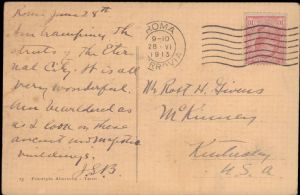 Rome June 28th
Am tramping the
streets of the Eter-
nal City. It is all
very wonderful.
Am bewildered as
as I look on these
ancient and majestic
buildings.
J.S.B.
ROMA
9-10
28 VI
1913
FERROVIA
Mr Rost H. Givens
McKinney
Kentucky
U.S.A